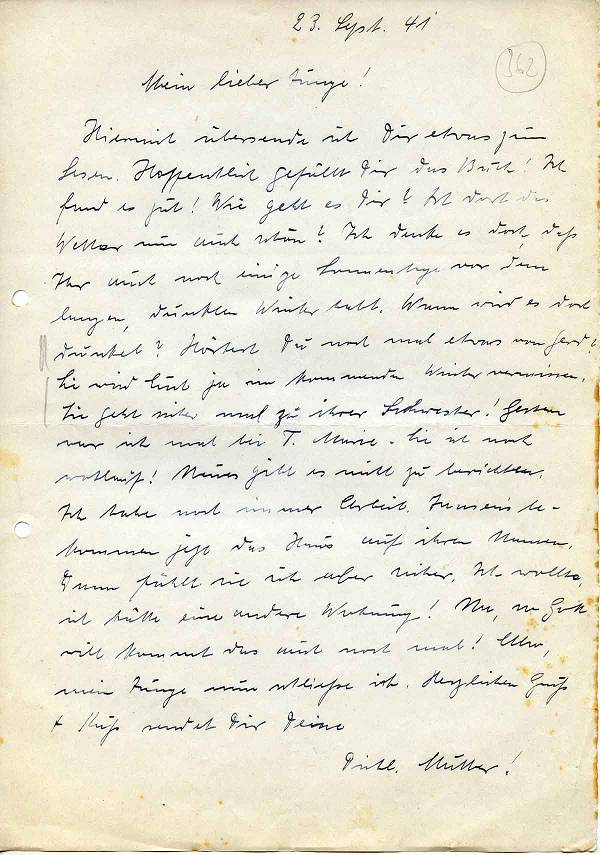 23. Sept. 41
362
Mein lieber Junge!
Hiermit übersende ich Dir etwas zum
Lesen. Hoffentlich gefällt Dir das Buch! Ich
fand es gut! Wie geht es Dir? Ist dort das
Wetter nun auch schön? Ich denke es doch, daß
Ihr auch noch einige Sonnentage vor dem
langen, dunklen Winter habt. Wann wird es dort
dunkel? Hörtest Du noch mal etwas von Gerd?
Sie wird Euch ja im kommenden Winter vermissen.
Sie geht sicher mal zu ihrer Schwester! Gestern
war ich mal bei T. Marie. Sie ist noch
wohlauf! Neues gibt es nicht zu berichten.
Ich habe noch immer Arbeit. Jansens be-
kommen jetzt das Haus auf ihren Namen.
Dann fühlt sie sich aber sicher. Ich wollte,
ich hätte eine andere Wohnung! Na, so Gott
will kommt das auch noch mal! Also,
mein Junge nun schließe ich. Herzlichen Gruß
+ Kuß sendet Dir Deine
Mutter!